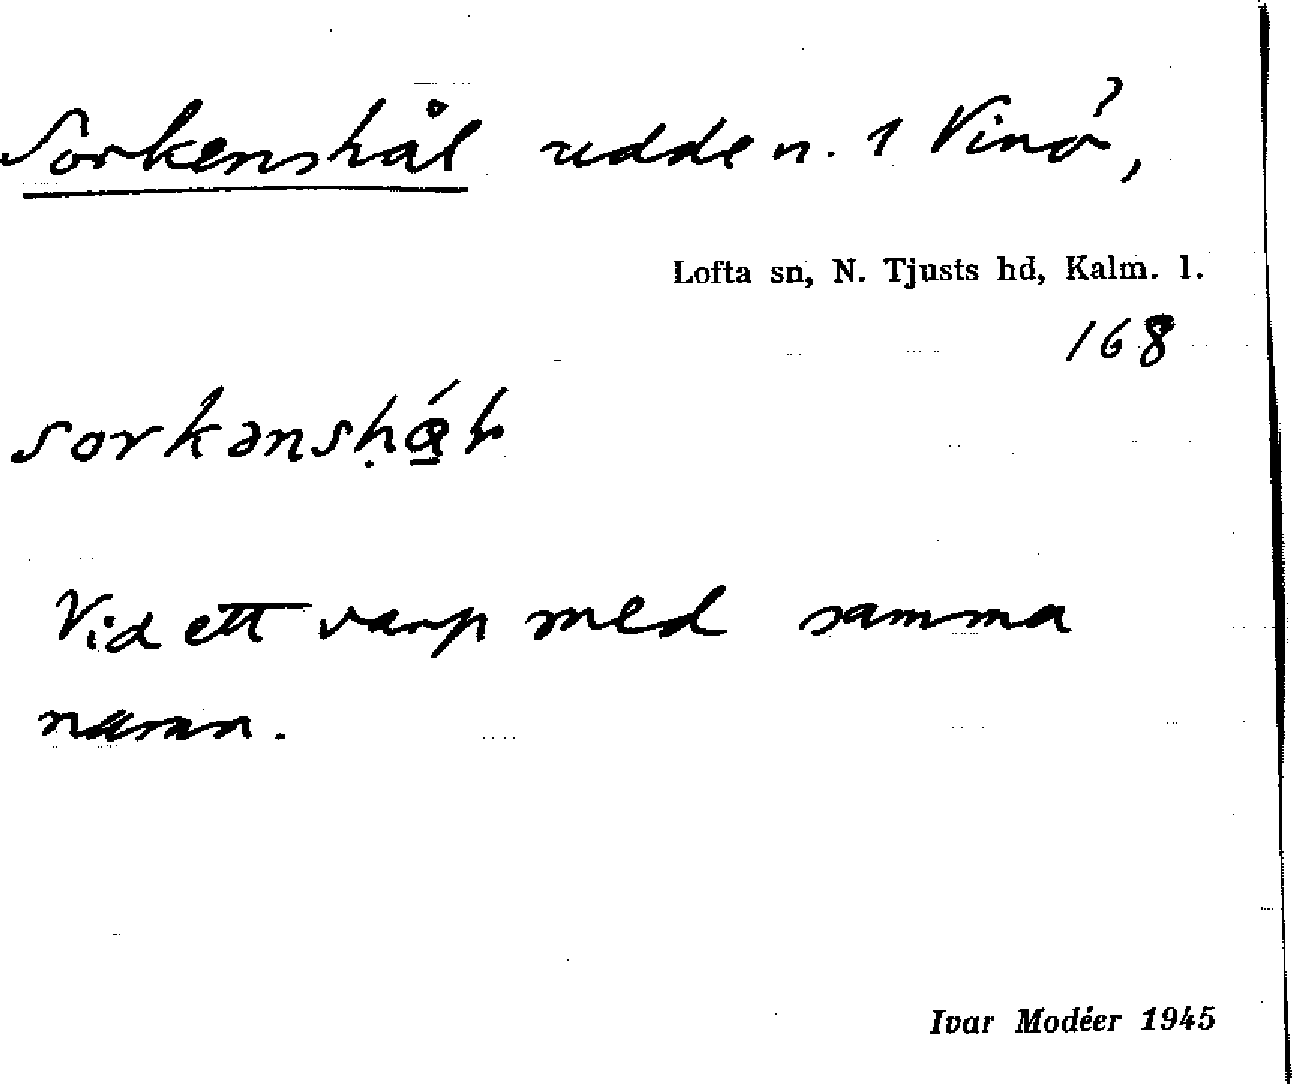 Sorkenshål udde n. 1 Vinö,
Lofta sn, N. Tjusts hd, Kalm. l.
168
Vid ett varp med samma
namn.
Ivar Modéer 1945